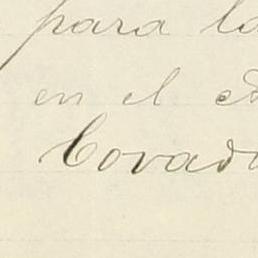 para la
en el
Covad